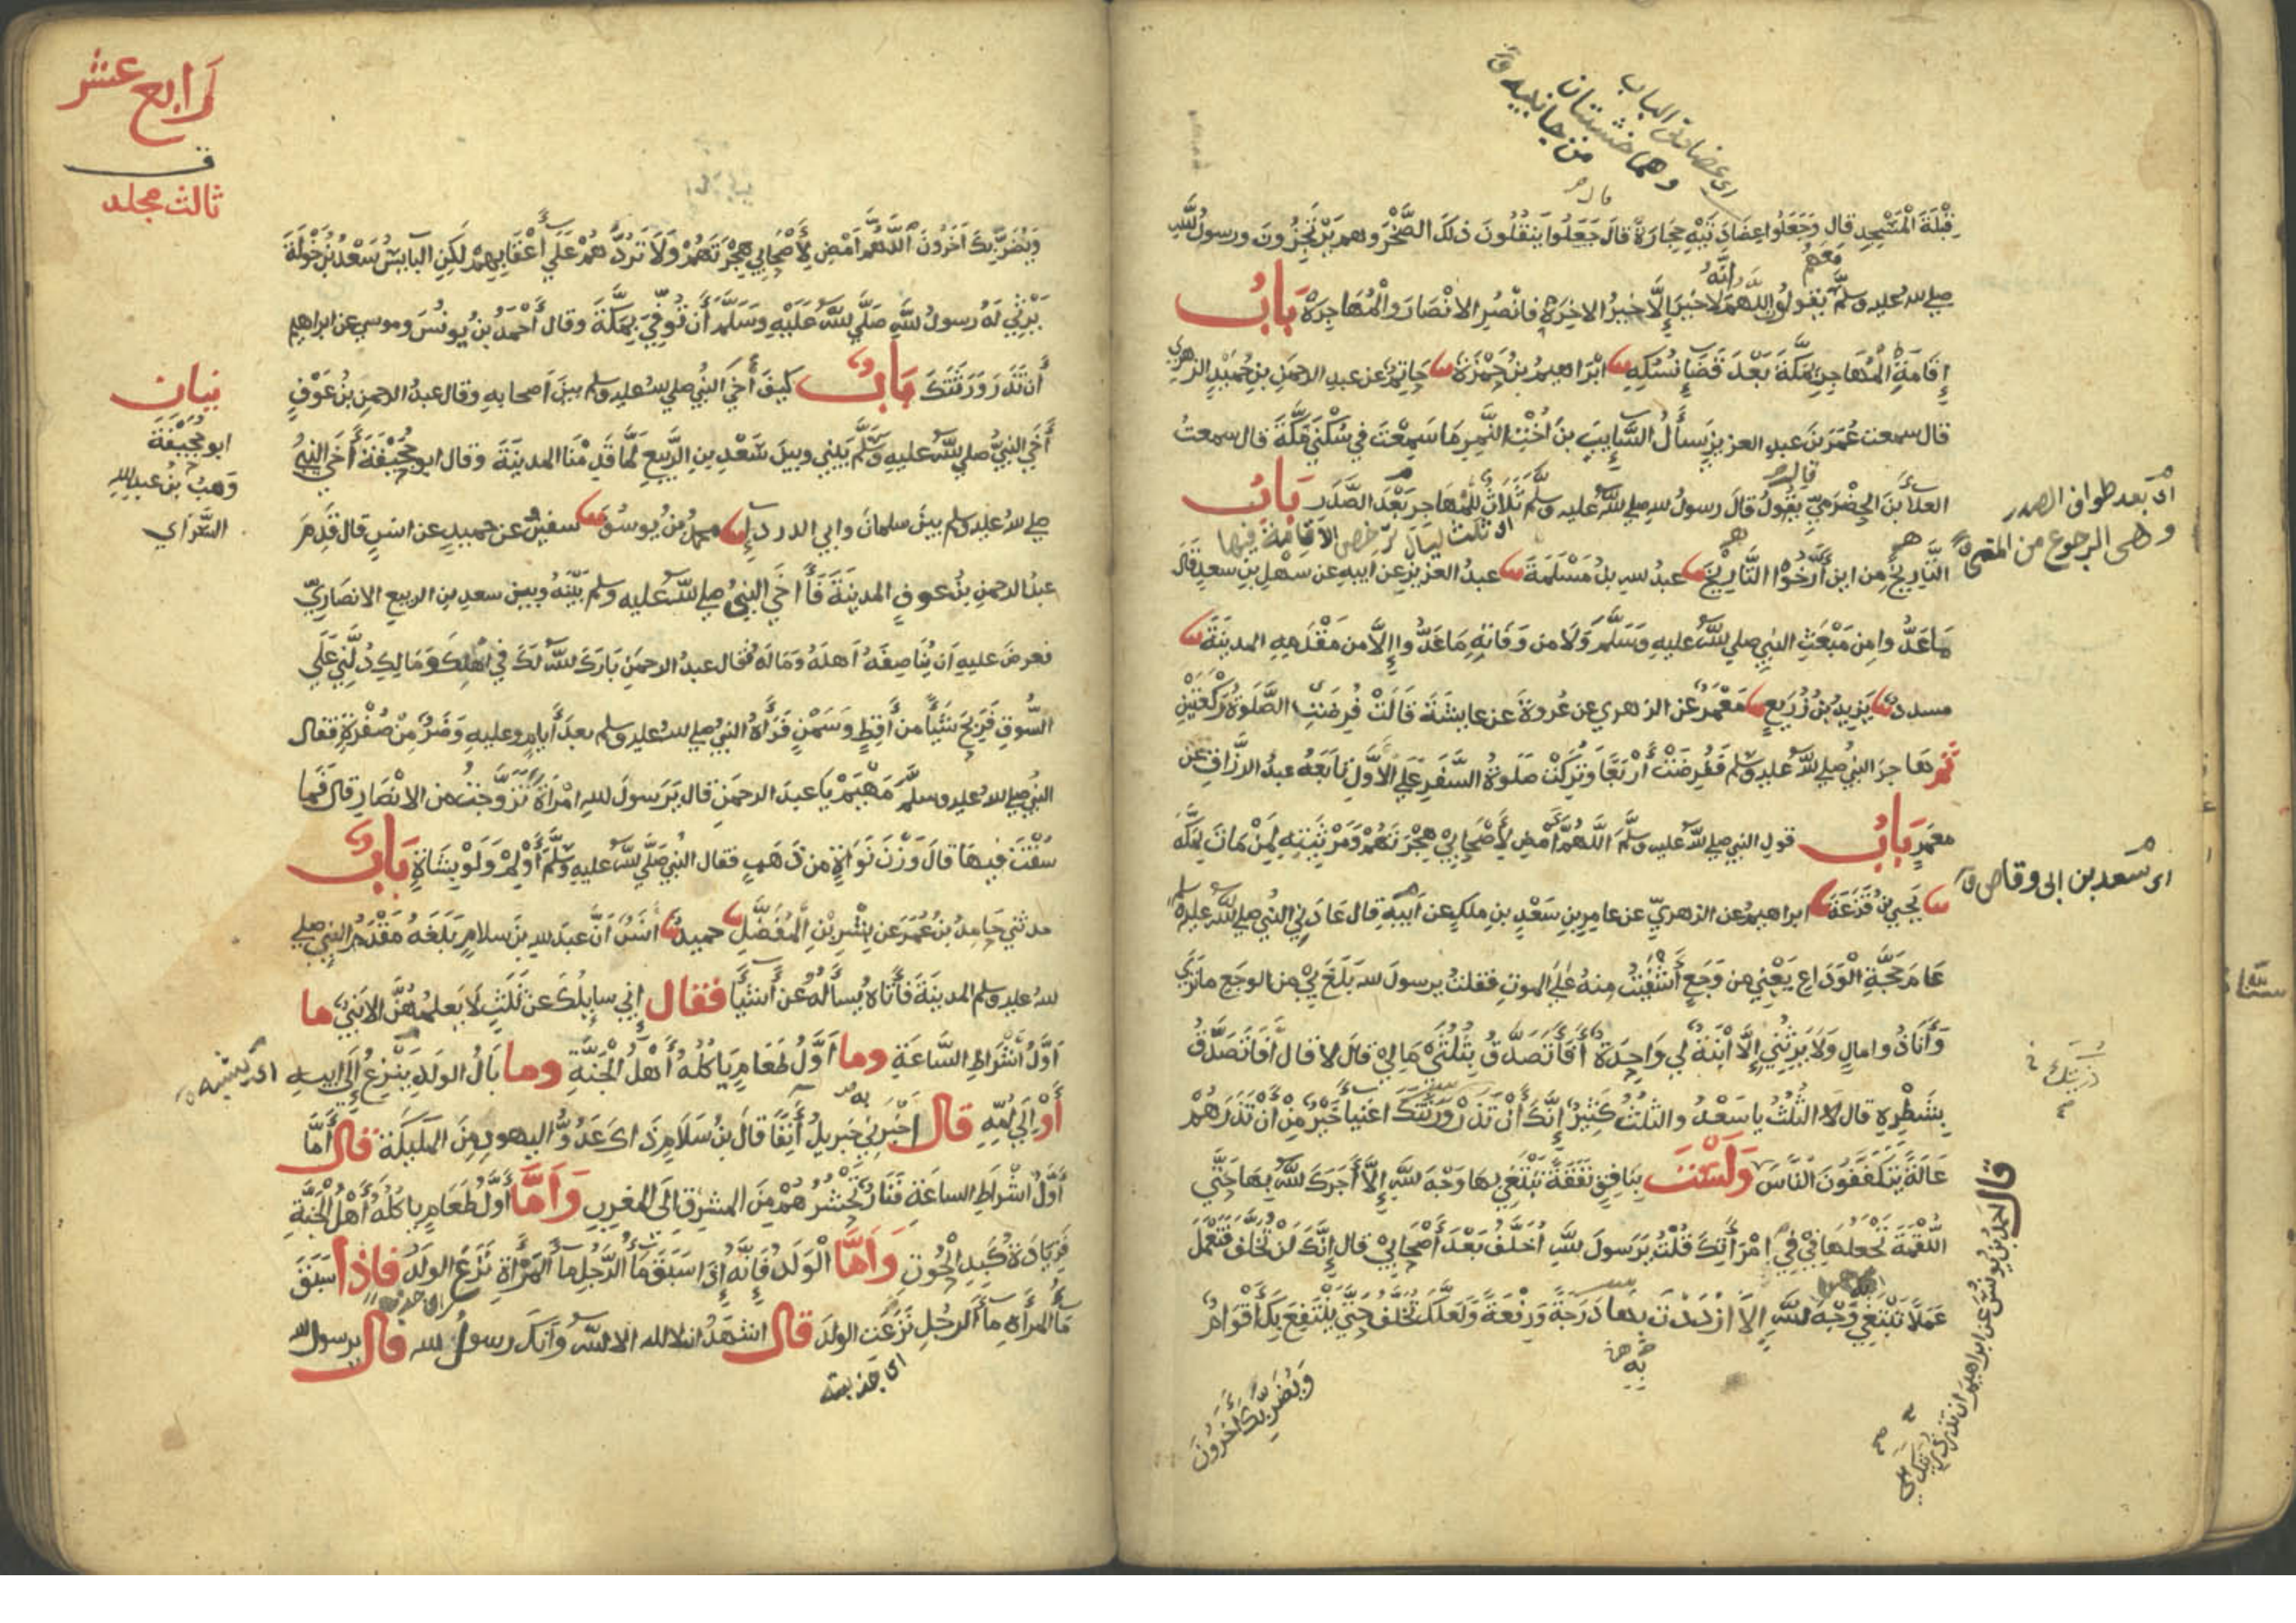 اى عضادتى الباب
وهما خشبتان
من جانبيه
قال
قِبْلَةَ الْمَسْجِدِ قال وَجَعَلُوا عِضَادَتَيْهِ حِجَارَةً قالَ جَعَلُوا يَنْقُلُونَ ذلكَ الصَّخْرَ وهم يَرْتَجِزُونَ ورسولُ الله
مَعَهُمْ
اِنَّهُ
صلى الله عليه وسلم يقولون اللهم لا خَيْرَ إِلَّا خَيْرُ الاخِرَةِ فانْصُرِ الانْصَارَ والْمُهَاجِرَةِ بَابُ
إِقَامَةِ الْمُهَاجِرِ بِمَكَّةَ بَعْدَ قَضَاءِ نُسُكِهِ ابْرَاهِيمُ بنُ حَمْزَةَ حَاتِمٌ عن عبدِ الرحمنِ بنِ حُمَيْدٍ الزهري
قال سمعت عُمَرَ بنَ عبدِ العزيزِ يَسأَلُ السَّايِبَ بنَ اخْتِ النَّمِرِ مَا سَمِعْتَ في سُكْنَى مَكَّةَ قال سمعتُ
قال
العلاءَ بنَ الحَضْرَمِيِّ يقُولُ قالَ رسولُ الله صلى الله عليه وسلم ثَلَاثٌ لِلْمُهَاجِرِ بَعْدَ الصَّدَرِ بَابُ
اى بعد طواف الصدر
وهى الرجوع من المنى
اى ثلث ليال ترخص الاقامة فيها
التَّارِيخُ من اين أَرَّخُوا التَّارِيخَ عبدُ الله بنُ مَسْلَمَةَ عبدُ العزيزِ عن ابيهِ عن سَهْلِ بنِ سعدٍ قالَ
مَا عَدُّوا من مَبْعَثِ النبي صلى الله عليه وَسَلَّمَ وَلَا من وَفَاتِهِ مَا عَدُّوا إِلَّا من مَقْدَمِهِ المدينَةَ
مسددٌ يَزِيدُ بنُ زُرَيعٍ مَعْمَرٌ عن الزهري عن عُروةَ عن عايشَةَ قَالَتْ فُرِضَتِ الصَّلَوةُ رَكْعَتَيْنِ
ثم هَاجرَ النبيُّ صلى الله عليه وسلم فَفُرِضَتْ أَرْبَعًا وَتُرِكَتْ صَلَوةُ السَّفَرِ عَلَى الأَوَّلِ تَابَعَهُ عبدُ الرَّزَّاقِ عن
معمرٍ بَابُ قولِ النبي صلى الله عليه وسلَّمَ اللَّهُمَّ أَمْضِ لِأَصْحَابِي هِجْرَتَهُمْ وَمَرْثِيَتِهِ لِمَنْ مَاتَ بِمَكَّةَ
اى سعد بن ابى وقاص
يَحيى بنُ قَزَعَةَ ابراهيمُ عن الزهريِّ عن عامرِ بنِ سَعْدِ بنِ ملكٍ عن أَبِيهِ قال عَادَنِي النبي صلى الله عليه وسلم
عَامَ حَجَّةِ الْوَدَاعِ يَعْنِي من وَجَعٍ أَشْفَيْتُ منهُ عَلَى الموتِ فقلتُ يرسولَ الله بَلَغَ بِي من الوجعِ ما ترى
وَأَنَا ذُو مالٍ وَلَا يَرِثُنِي إِلَّا ابْنَةٌ لِي وَاحِدَةٌ أَفَأَتَصَدَّقُ بِثُلُثَيْ مَالِي قال لا قال أَفَأَتَصَدَّقُ
ذريتك
بِشَطْرِهِ قال لا الثُلُثُ يا سَعْدُ والثلُثُ كَثِيرٌ إِنَّكَ أَنْ تَذَرَ وَرَثَتَكَ اغنياءَ خَيْرٌ مِنْ أَنْ تَذَرَهُمْ
عَالَةً يَتَكَفَّفُونَ النَّاسَ وَلَسْتَ بِنَافِقٍ نَفَقَةً تَبْتَغِي بها وَجْهَ اللهِ إِلَّا أَجَرَكَ اللهُ بِهَا حَتَّى
اللقْمَةَ تَجْعلُهَا في فِي امْرَأَتِكَ قُلْتُ يَرَسولَ اللهِ اُخَلَّفُ بَعْدَ أَصْحَابِي قال إِنَّكَ لَنْ تُخَلَّفَ فَتَعْمَلَ
عَمَلًا تَبْتَغِي وَجْهَ اللهِ إِلَّا ازْدَدْتَ بها دَرَجَةً وَرِفْعَةً وَلَعَلَّكَ تُخَلَّفُ حَتَّى يَنْتَفِعَ بِكَ أَقْوَامٌ
به
قال احمد بن يونس عن ابراهيم ان تذر ذريتك
وَيُضَرَّ بِكَ آخَرُونَ
رابع عشر
ثالث مجلد
وَيُضَرَّ بِكَ آخَرُونَ اللَّهُمَّ أَمْضِ لِأَصْحَابِي هِجْرَتَهُمْ وَلَا تَرُدَّهُمْ عَلَى أَعْقَابِهِمْ لَكِنِ البَايِسُ سَعْدُ بنُ خَوْلَةَ
يَرْثِي لَهُ رسولُ اللهِ صَلَّى اللهُ عَلَيْهِ وَسَلَّمَ أَن تُوُفِّيَ بِمَكَّةَ وقال أَحْمَدُ بنُ يونُسَ وموسى عن ابراهيم
أَن تَذَرَ وَرَثَتَكَ بَابٌ كَيفَ آخَى النبيُّ صلى الله عليه وسلم بينَ أصحابهِ وقال عبدُ الرحمنِ بنُ عَوْفٍ
آخَى النبيُّ صلى اللهُ عليهِ وَسَلَّمَ بَيْنِي وبينَ سَعْدِ بنِ الرَّبِيعِ لَمَّا قَدِمْنَا المدينَةَ وقال ابو جُحَيْفَةَ آخَى النبيُّ
بيان
ابو جُحَيْفَةَ
وَهبُ بنُ عبدِ الله
السُّوَاي
صلى الله عليه وسلم بينَ سلمانَ وابي الدرداءِ محمدُ بنُ يُوسُفَ سفينُ عن حميدٍ عن انسٍ قال قَدِمَ
عبدُ الرحمنِ بنُ عوفٍ المدينَةَ فَآخَى النبيُّ صلى الله عليه وسلم بَيْنَهُ وبين سعدِ بنِ الربيعِ الانصَارِيِّ
فعرضَ عليهِ ان يُنَاصِفَهُ أهلَهُ وَمَالَهُ فقال عبدُ الرحمنِ بَارَكَ اللهُ لَكَ في أَهْلِكَ وَمَالِكَ دُلَّنِي عَلَى
السُّوقِ فَرَبِحَ شَيْئًا من أَقِطٍ وَسَمْنٍ فَرَآهُ النبيُّ صلى الله عليه وسلم بعدَ أَيامٍ وعليهِ وَضَرٌ مِنْ صُفْرَةٍ فقال
النبيُّ صلى الله عليه وسلَّمَ مَهْيَمْ يَا عبدَ الرحمَنِ قال يَرَسولَ اللهِ امْرَاةً تَزَوَّجْتُ من الانْصَارِ قال فَمَا
سُقْتَ فيهَا قالَ وَزْنَ نَوَاةٍ من ذَهَبٍ فقال النبيُّ صَلَّى اللهُ عليهِ وَسَلَّمَ أَوْلِمْ وَلَوْ بِشَاةٍ بَابٌ
حدثني حَامِدُ بنُ عُمَرَ عن بِشْرِ بْنِ الْمُفَضَّلِ حميدٌ أنَسٌ اَنَّ عبدَ الله بنَ سلامٍ بَلَغَهُ مَقْدَمُ النبيِ صلى
الله عليه وسلم المدينَةَ فَأَتَاهُ يُسأَلُهُ عن أَشْيَاءَ فقال إِنِّي سايِلُكَ عن ثَلَثٍ لَا يَعلمُهُنَّ الا نَبِيٌ ما
أَوَّلُ أَشْرَاطِ السَّاعَةِ وما أَوَّلُ طَعَامٍ يَاكُلُهُ أَهْلُ الجَنَّةِ وما بَالُ الولَدِ يَنْزِعُ إِلَى ابيهِ
اى يشبه
أَوْ إِلَى أُمِّهِ قال اخْبَرَنِي بِهِ جَبْرِيلُ آنِفًا قال بنُ سَلَامٍ ذَاكَ عَدُوُّ اليهودِ مِنَ الملَيكَةِ قال أَمَّا
أَوَّلُ اشْرَاطِ الساعَةِ فَنَارٌ تَحْشُرُهُمْ مِنَ المشرقِ الَى المغربِ وَأَمَّا أوَّلُ طَعَامٍ ياكُلُهُ أَهْلُ الجَنَّةِ
فَزِيَادَةُ كَبِدِ الْحُوتِ وَأَمَّا الْوَلَدُ فَإِنَّهُ إِذَا سَبَقَ مَاُ الرَّجُلِ مَا المَرْأَةِ نَزَعَ الولَدَ فاذا سَبَقَ
مَاُ المرأَةِ مَا الرجُلِ نَزَعَت الولَدَ قال اشهَدُ ان لا اله الا اللهُ وَأنَكَ رسولُ الله قال يرسول الله
اى جذبته